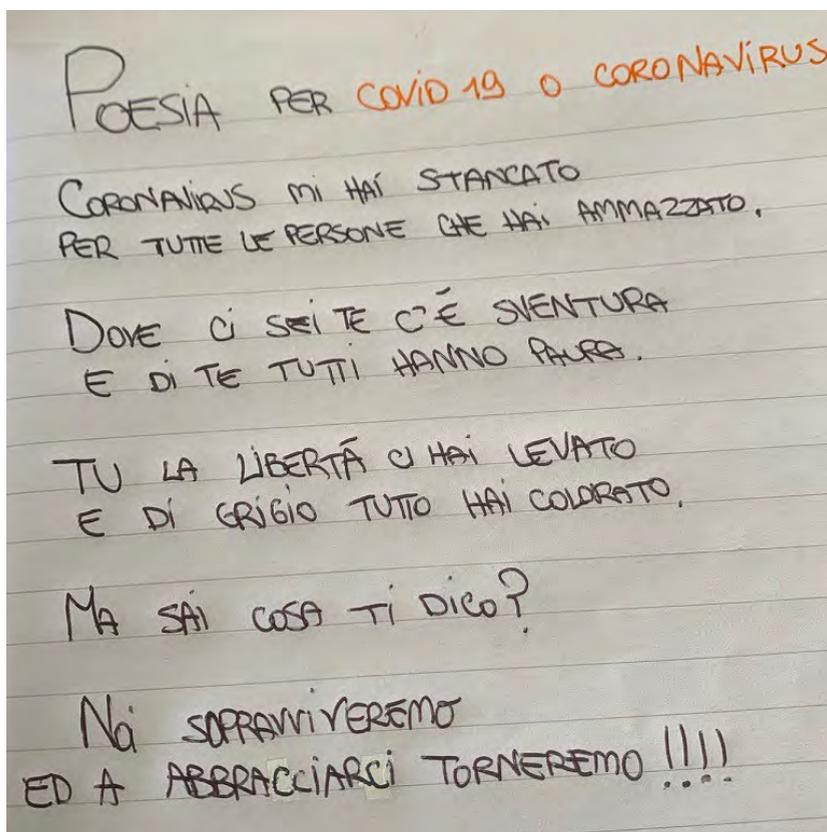 POESIA PER COVID 19 O CORONAVIRUS
CORONAVIRUS MI HAI STANCATO
PER TUTTE LE PERSONE CHE HAI AMMAZZATO.
DOVE CI SEI TE C'È SVENTURA
E DI TE TUTTI HANNO PAURA.
TU LA LIBERTÀ CI HAI LEVATO
E DI GRIGIO TUTTO HAI COLORATO.
MA SAI COSA TI DICO?
NOI SOPRAVVIVEREMO
ED A ABBRACCIARCI TORNEREMO !!!!